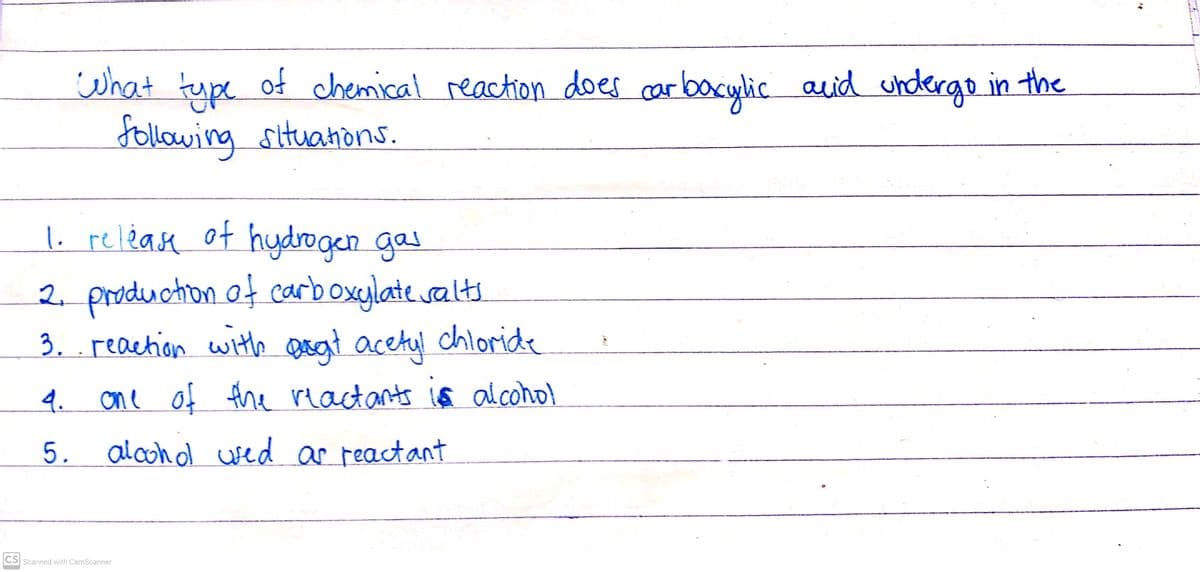 What type of chemical reaction does carboxylic acid undergo in the
following situations.
1. release of hydrogen gas
2. production of carboxylate salts
3. reaction with acetyl chloride
4. one of the reactants is alcohol
5. alcohol used as reactant
CS Scanned with CamScanner